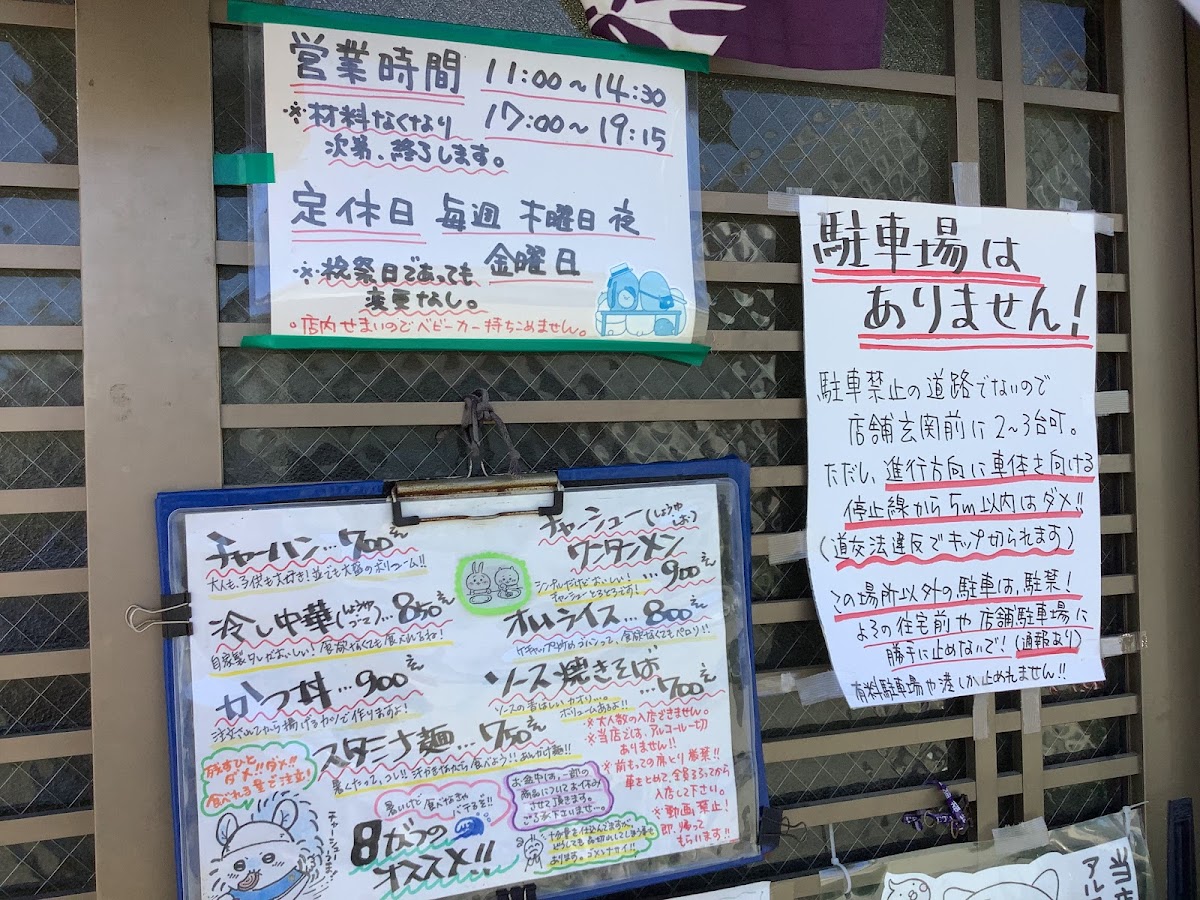 営業時間 11:00～14:30
※材料なくなり 17:00～19:15
次第、終了します。
定休日 毎週 木曜日 夜
金曜日
※祝祭日であっても
変更なし。
。店内せまいのでベビーカー持ちこめません。
駐車場は
ありません!
駐車禁止の道路でないので
店舗玄関前に2～3台可。
ただし、進行方向に車体を向ける
停止線から5m以内はダメ!!
(道交法違反でキップ切られます)
この場所以外の駐車は、駐禁!
よその住宅前や店舗駐車場に
勝手に止めないで!(通報あり)
有料駐車場や港しか止めれません!!
チャーハン…700え
大人も子供も大好き!並でも大盛のボリューム!!
冷し中華(しょうゆ ゴマ)…850え
自家製タレがおいしい!食欲なくても食べれるよね!
かつ丼…900え
注文されてから揚げるカツで作りますよ!
スタミナ麺…750え
暑くたって、コレ!!汗かきながら食べよう!!あんかけ麺!!
チャーシュー(しょうゆ しお)
ワータンメン
…900え
シンプルだけどおいしい!
チャーシューとろとろです!
オムライス…800え
ケチャップ炒めのゴハンって、食欲なくてもペロリ!!
ソース焼きそば
…700え
ソースの香ばしいカオリ…。
ボリュームあるよ!!
※大人数の入店できません。
※当店では、アルコール一切
ありません!!
※前もっての席とり厳禁!!
車をとめて、全員そろってから
入店して下さい。
※動画禁止!
即、帰って
もらいます!!
残すひと
ダメ!!ダメ!!
食べれる量で注文!
暑いけど食べなきゃ
バテるぞ!!
8がつの
オススメ!!
お盆中は、一部の
商品についてお休み
させて頂きます。
ご了承下さいませ…。
十分量を仕込んでますが、
どうしても品切れしてしまう事も
あります。ゴメンナサイ!!
当
アル